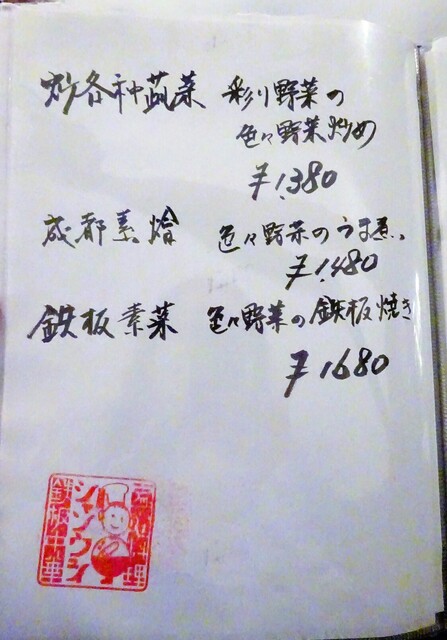 炒各种蔬菜 彩り野菜の
色々野菜炒め
¥1,380
成都素烩 色々野菜のうま煮
¥1,480
鉄板素菜 色々野菜の鉄板焼き
¥1680
シャンウェイ